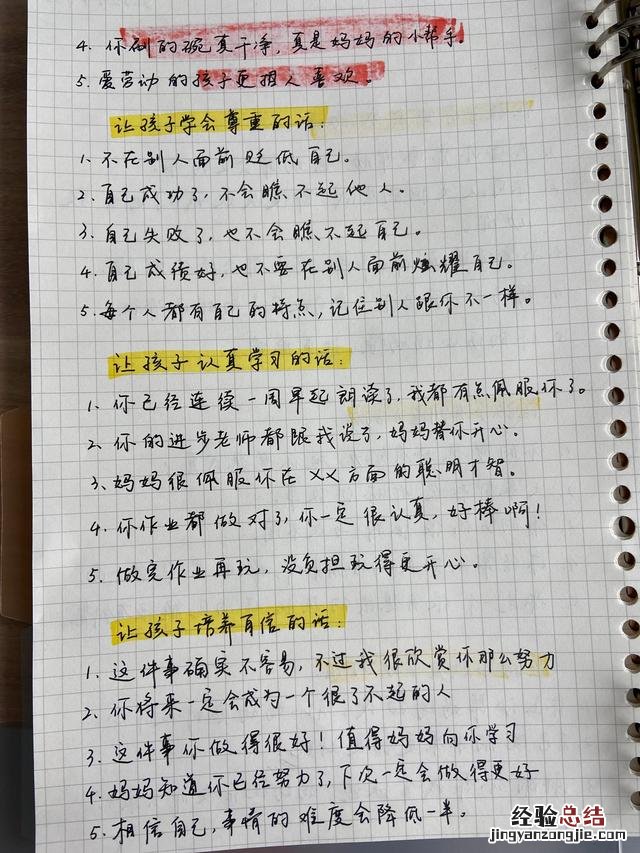 4. 你刷的碗真干净,真是妈妈的小帮手。
5. 爱劳动的孩子更招人喜欢。
让孩子学会尊重的话:
1. 不在别人面前贬低自己。
2. 自己成功了,不会瞧不起他人。
3. 自己失败了,也不会瞧不起自己。
4. 自己成绩好,也不要在别人面前炫耀自己。
5. 每个人都有自己的特点,记住别人跟你不一样。
让孩子认真学习的话:
1. 你已经连续一周早起朗读了,我都有点佩服你了。
2. 你的进步老师都跟我说了,妈妈替你开心。
3. 妈妈很佩服你在××方面的聪明才智。
4. 你作业都做对了,你一定很认真,好棒啊!
5. 做完作业再玩,没负担玩得更开心。
让孩子培养自信的话:
1. 这件事确实不容易,不过我很欣赏你那么努力
2. 你将来一定会成为一个很了不起的人
3. 这件事你做得很好!值得妈妈向你学习
4. 妈妈知道你已经努力了,下次一定会做得更好
5. 相信自己,事情的难度会降低一半。
经验总结
jingyanzongjie.com